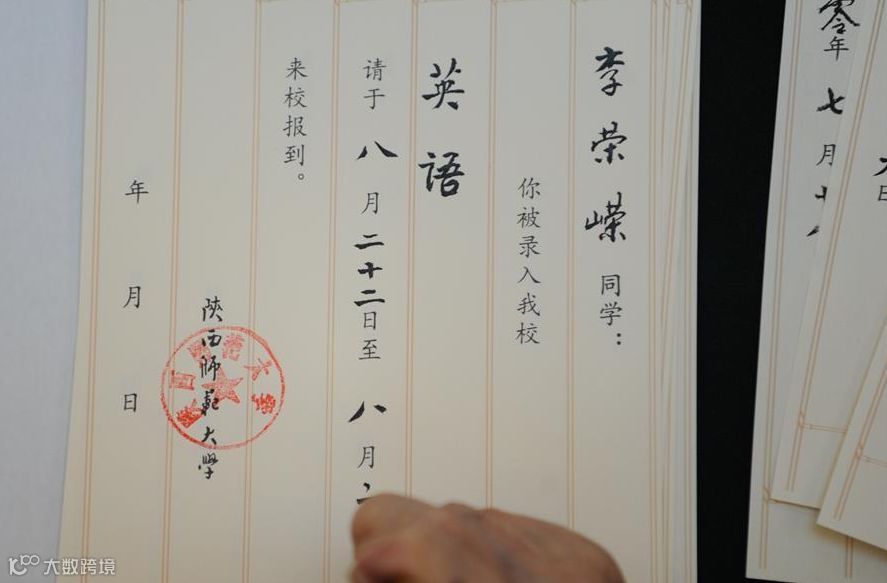 李荣嵘同学：
你被录入我校
英语
请于八月二十二日至八月二
来校报到。
陕西师范大学
年 月 日
零年七月十八
日
大数跨境